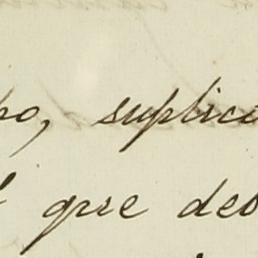 po, suplica
que deb